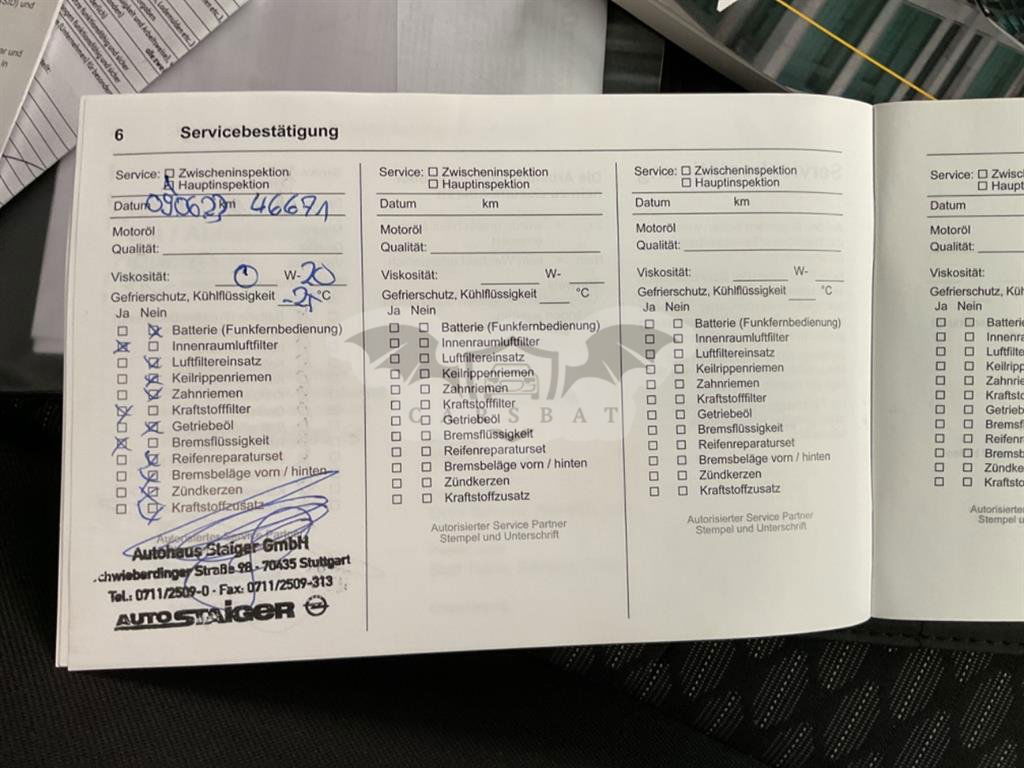 6 Servicebestätigung
Service: Zwischeninspektion
Hauptinspektion
Datum 090623 km 46671
Motoröl
Qualität:
Viskosität: 0 W-20
Gefrierschutz, Kühlflüssigkeit °C
Ja Nein
Batterie (Funkfernbedienung)
Innenraumluftfilter
Luftfiltereinsatz
Keilrippenriemen
Zahnriemen
Kraftstofffilter
Getriebeöl
Bremsflüssigkeit
Reifenreparaturset
Bremsbeläge vorn / hinten
Zündkerzen
Kraftstoffzusatz
Autorisierter Service Partner
Autohaus Staiger GmbH
chwieberdinger Straße 98 - 70435 Stuttgart
Tel.: 0711/2509-0 · Fax: 0711/2509-313
AUTO STAIGER
Service: Zwischeninspektion
Hauptinspektion
Datum km
Motoröl
Qualität:
Viskosität: W-
Gefrierschutz, Kühlflüssigkeit °C
Ja Nein
Batterie (Funkfernbedienung)
Innenraumluftfilter
Luftfiltereinsatz
Keilrippenriemen
Zahnriemen
Kraftstofffilter
Getriebeöl
Bremsflüssigkeit
Reifenreparaturset
Bremsbeläge vorn / hinten
Zündkerzen
Kraftstoffzusatz
Autorisierter Service Partner
Stempel und Unterschrift
Service: Zwischeninspektion
Hauptinspektion
Datum km
Motoröl
Qualität:
Viskosität: W-
Gefrierschutz, Kühlflüssigkeit °C
Ja Nein
Batterie (Funkfernbedienung)
Innenraumluftfilter
Luftfiltereinsatz
Keilrippenriemen
Zahnriemen
Kraftstofffilter
Getriebeöl
Bremsflüssigkeit
Reifenreparaturset
Bremsbeläge vorn / hinten
Zündkerzen
Kraftstoffzusatz
Autorisierter Service Partner
Stempel und Unterschrift
Service: Zwisc
Haupt
Datum
Motoröl
Qualität:
Viskosität:
Gefrierschutz, Kühlf
Ja Nein
Batteri
Innenra
Luftfilte
Keilripp
Zahnrie
Kraftsto
Getrieb
Bremsf
Reifenr
Bremsb
Zündke
Kraftsto
Autorisi
Stempel u
CARSBAT